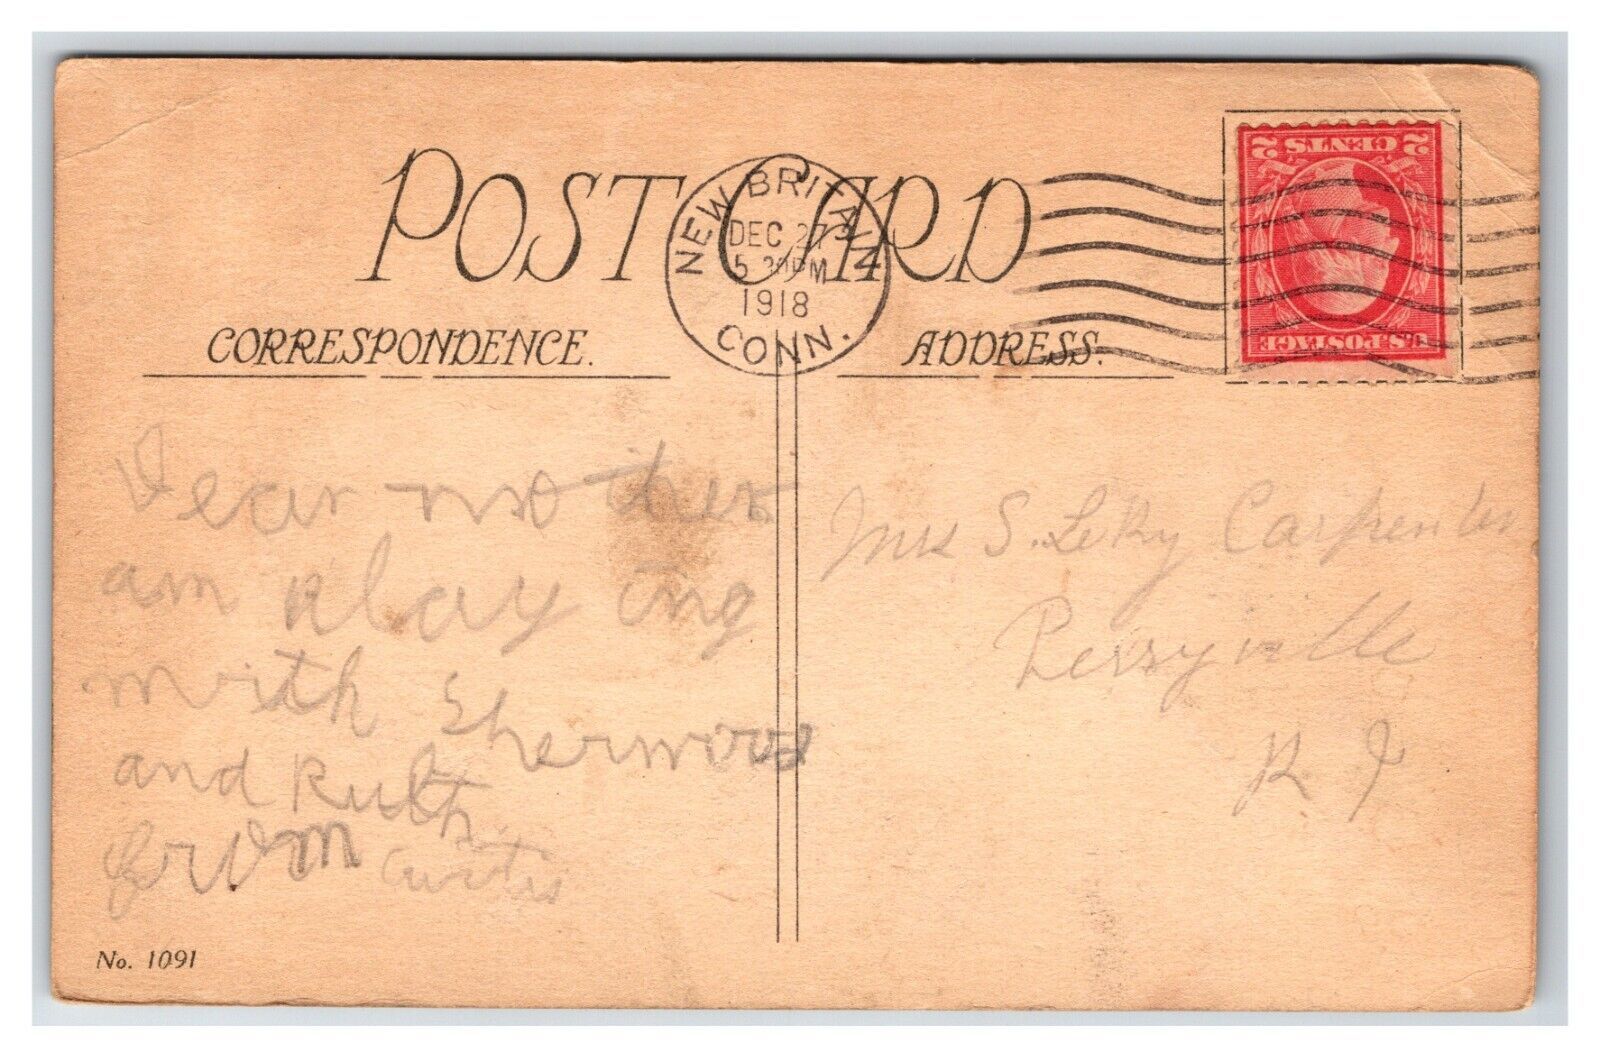 POST CARD
NEW BRITAIN
DEC 27
5 30PM
1918
CONN.
2 CENTS 2
U.S. POSTAGE
CORRESPONDENCE.
ADDRESS.
Dear mother
am playing
with Sherwood
and Ruth
from Curtis
S. Carpenter
Perryville
R I
No. 1091